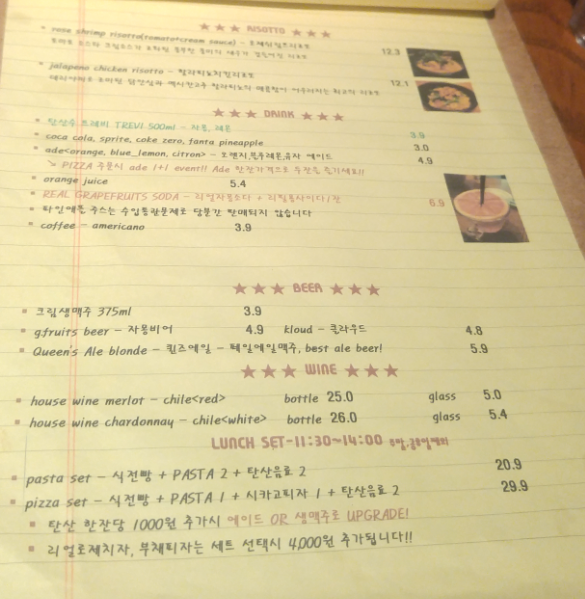 ★ ★ ★ RISOTTO ★ ★ ★
rose shrimp risotto(tomato+cream sauce) - 로제쉬림프리조또 12.3
jalapeno chicken risotto - 할라피뇨치킨리조또 12.1
★ ★ ★ DRINK ★ ★ ★
탄산수 트레비 TREVI 500ml - 자몽, 레몬 3.9
coca cola, sprite, coke zero, fanta pineapple 3.0
ade<orange, blue_lemon, citron> - 오렌지,블루레몬,유자 에이드 4.9
PIZZA 주문시 ade 1+1 event!! Ade 한잔가격으로 두잔을 즐기세요!!
orange juice 5.4
REAL GRAPEFRUITS SODA - 리얼자몽소다 + 리필용사이다1잔 6.9
파인애플 주스는 수입통관문제로 당분간 판매되지 않습니다
coffee - americano 3.9
★ ★ ★ BEER ★ ★ ★
크림생맥주 375ml 3.9
g.fruits beer - 자몽비어 4.9 kloud - 클라우드 4.8
Queen's Ale blonde - 퀸즈에일 - 페일에일맥주, best ale beer! 5.9
★ ★ ★ WINE ★ ★ ★
house wine merlot - chile<red> bottle 25.0 glass 5.0
house wine chardonnay - chile<white> bottle 26.0 glass 5.4
LUNCH SET-11:30~14:00 주말,공휴일제외
pasta set - 식전빵 + PASTA 2 + 탄산음료 2 20.9
pizza set - 식전빵 + PASTA 1 + 시카고피자 1 + 탄산음료 2 29.9
탄산 한잔당 1000원 추가시 에이드 OR 생맥주로 UPGRADE!
리얼로제치자, 부채피자는 세트 선택시 4,000원 추가됩니다!!